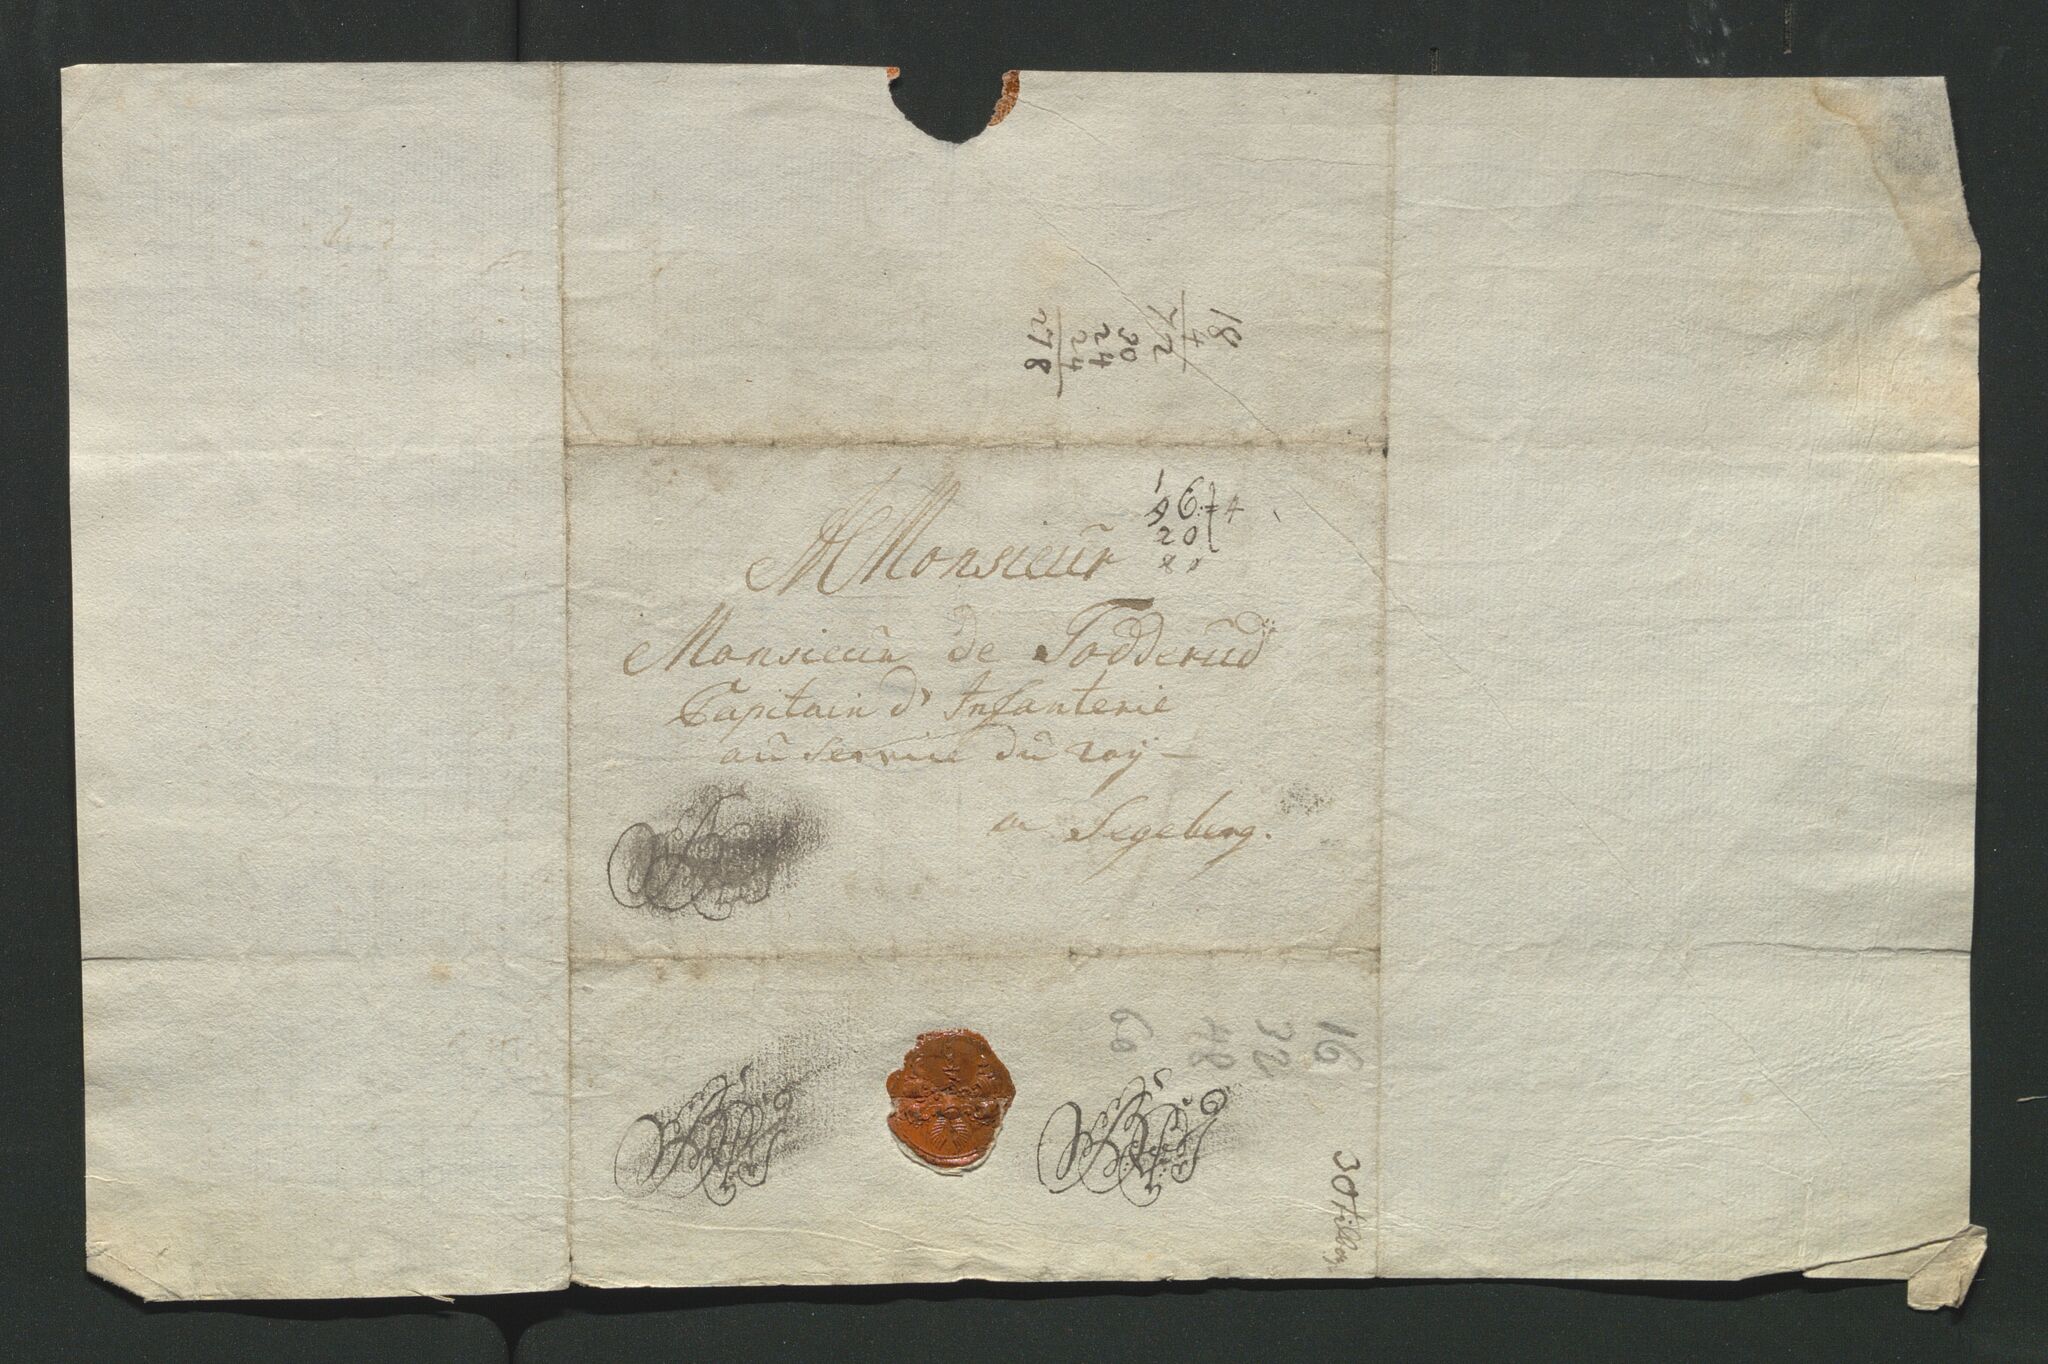 18
4
72
30
24
24
278
A Monsieur
Monsieur de Todderud
Capitain d'Infanterie
au service du roy
a Segeberg.
16
20
4
16
32
48
60
30